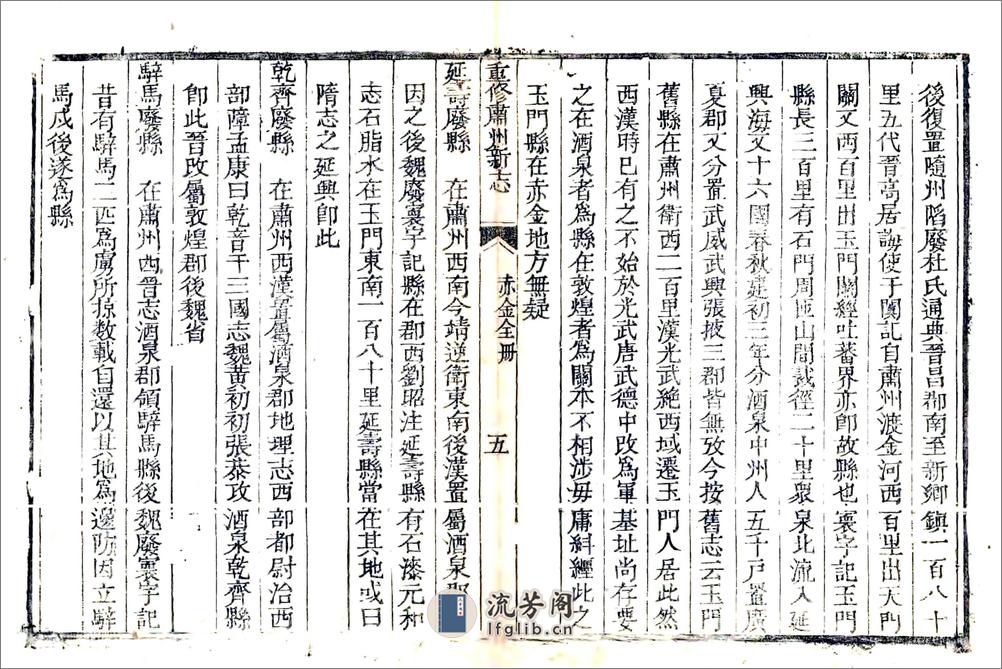 後復置隨州陷廢杜氏通典晉昌郡南至新鄉鎮一百八十
里五代晉高居誨使于闐記自肅州渡金河西百里出天門
關又西百里出玉門關經吐蕃界亦即故縣也寰宇記玉門
縣長三百里有石門周匝山間裁徑二十里眾泉北流入延
興海又十六國春秋建初三年分酒泉中州人五千戸置廣
夏郡又分置武威武興張掖三郡皆無攷今按舊志云玉門
舊縣在肅州衛西二百里漢光武絶西域遷玉門人居此然
西漢時已有之不始於光武唐武德中改爲軍基址尚存要
之在酒泉者爲縣在敦煌者爲關本不相涉毋庸糾纒此之
玉門縣在赤金地方無疑
重修肅州新志
赤金全冊
五
延壽廢縣 在肅州西南今靖逆衛東南後漢置屬酒泉郡
因之後魏廢寰宇記縣在郡西劉昭注延壽縣有石漆元和
志石脂水在玉門東南一百八十里延壽縣當在其地或曰
隋志之延興卽此
乾齊廢縣 在肅州西漢置屬酒泉郡地理志西部都尉治西
部障孟康曰乾音干三國志魏黃初初張恭攻酒泉乾齊縣
卽此晉改屬敦煌郡後魏省
騂馬廢縣 在肅州西晉志酒泉郡領騂馬縣後魏廢寰宇記
昔有騂馬二匹爲虜所掠數載自還以其地爲邊防因立騂
馬戍後遂爲縣
流芳閣
lfglib.cn